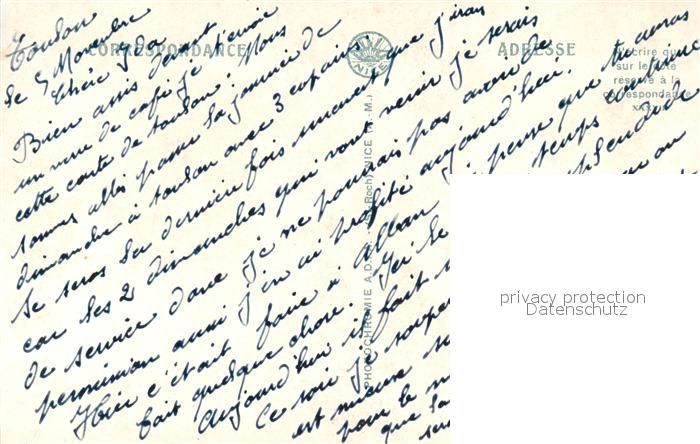 Toulon
le 5 Novembre
Chère Ida
Bien assis devant
un verre de café je t'envoie
cette carte de toulon. Nous
sommes allés passer la journée de
dimanche à toulon avec 3 copains.
Se seras la dernière fois que j'irai
car les 2 dimanches qui vont venir je serais
de service donc je ne pourrais pas avoir de
permission aussi j'en ai profité aujourd'hui.
Hier c'était foire à Alban je pense que tu auras
fait quelque chose. Ici le temps continue
Aujourd'hui il fait splendide
Ce soir je
est mieux
pour le
que la
CORRESPONDANCE
ADRESSE
N'écrire que
sur le côté
réservé à la
correspondance
PHOTOCHROMIE A.D.I.A. NICE (A.-M.)
privacy protection
Datenschutz